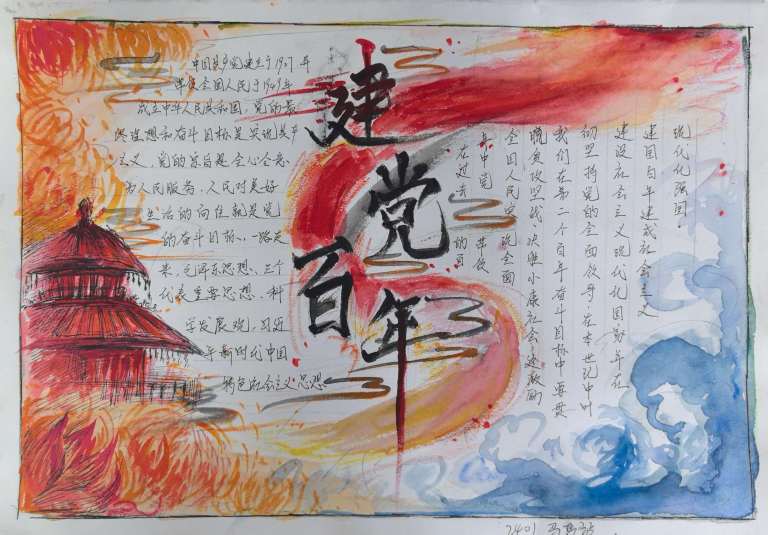 建党百年
中国共产党建立于1921年
率领全国人民于1949年
成立中华人民共和国，党的最
终理想和奋斗目标是实现共产
主义，党的宗旨是全心全意
为人民服务，人民对美好
生活的向往就是党
的奋斗目标，一路走
来，毛泽东思想、三个
代表重要思想，科
学发展观，习近
平新时代中国
特色社会主义思想
在过去的百
共中党带领
全国人民实施全面
脱贫攻坚战，决胜小康社会，
我们在第二个百年奋斗目标中，要贯
彻坚持党的全面领导，在本世纪中叶
建设社会主义现代化国
建国百年建成社会主义
现代化强国.